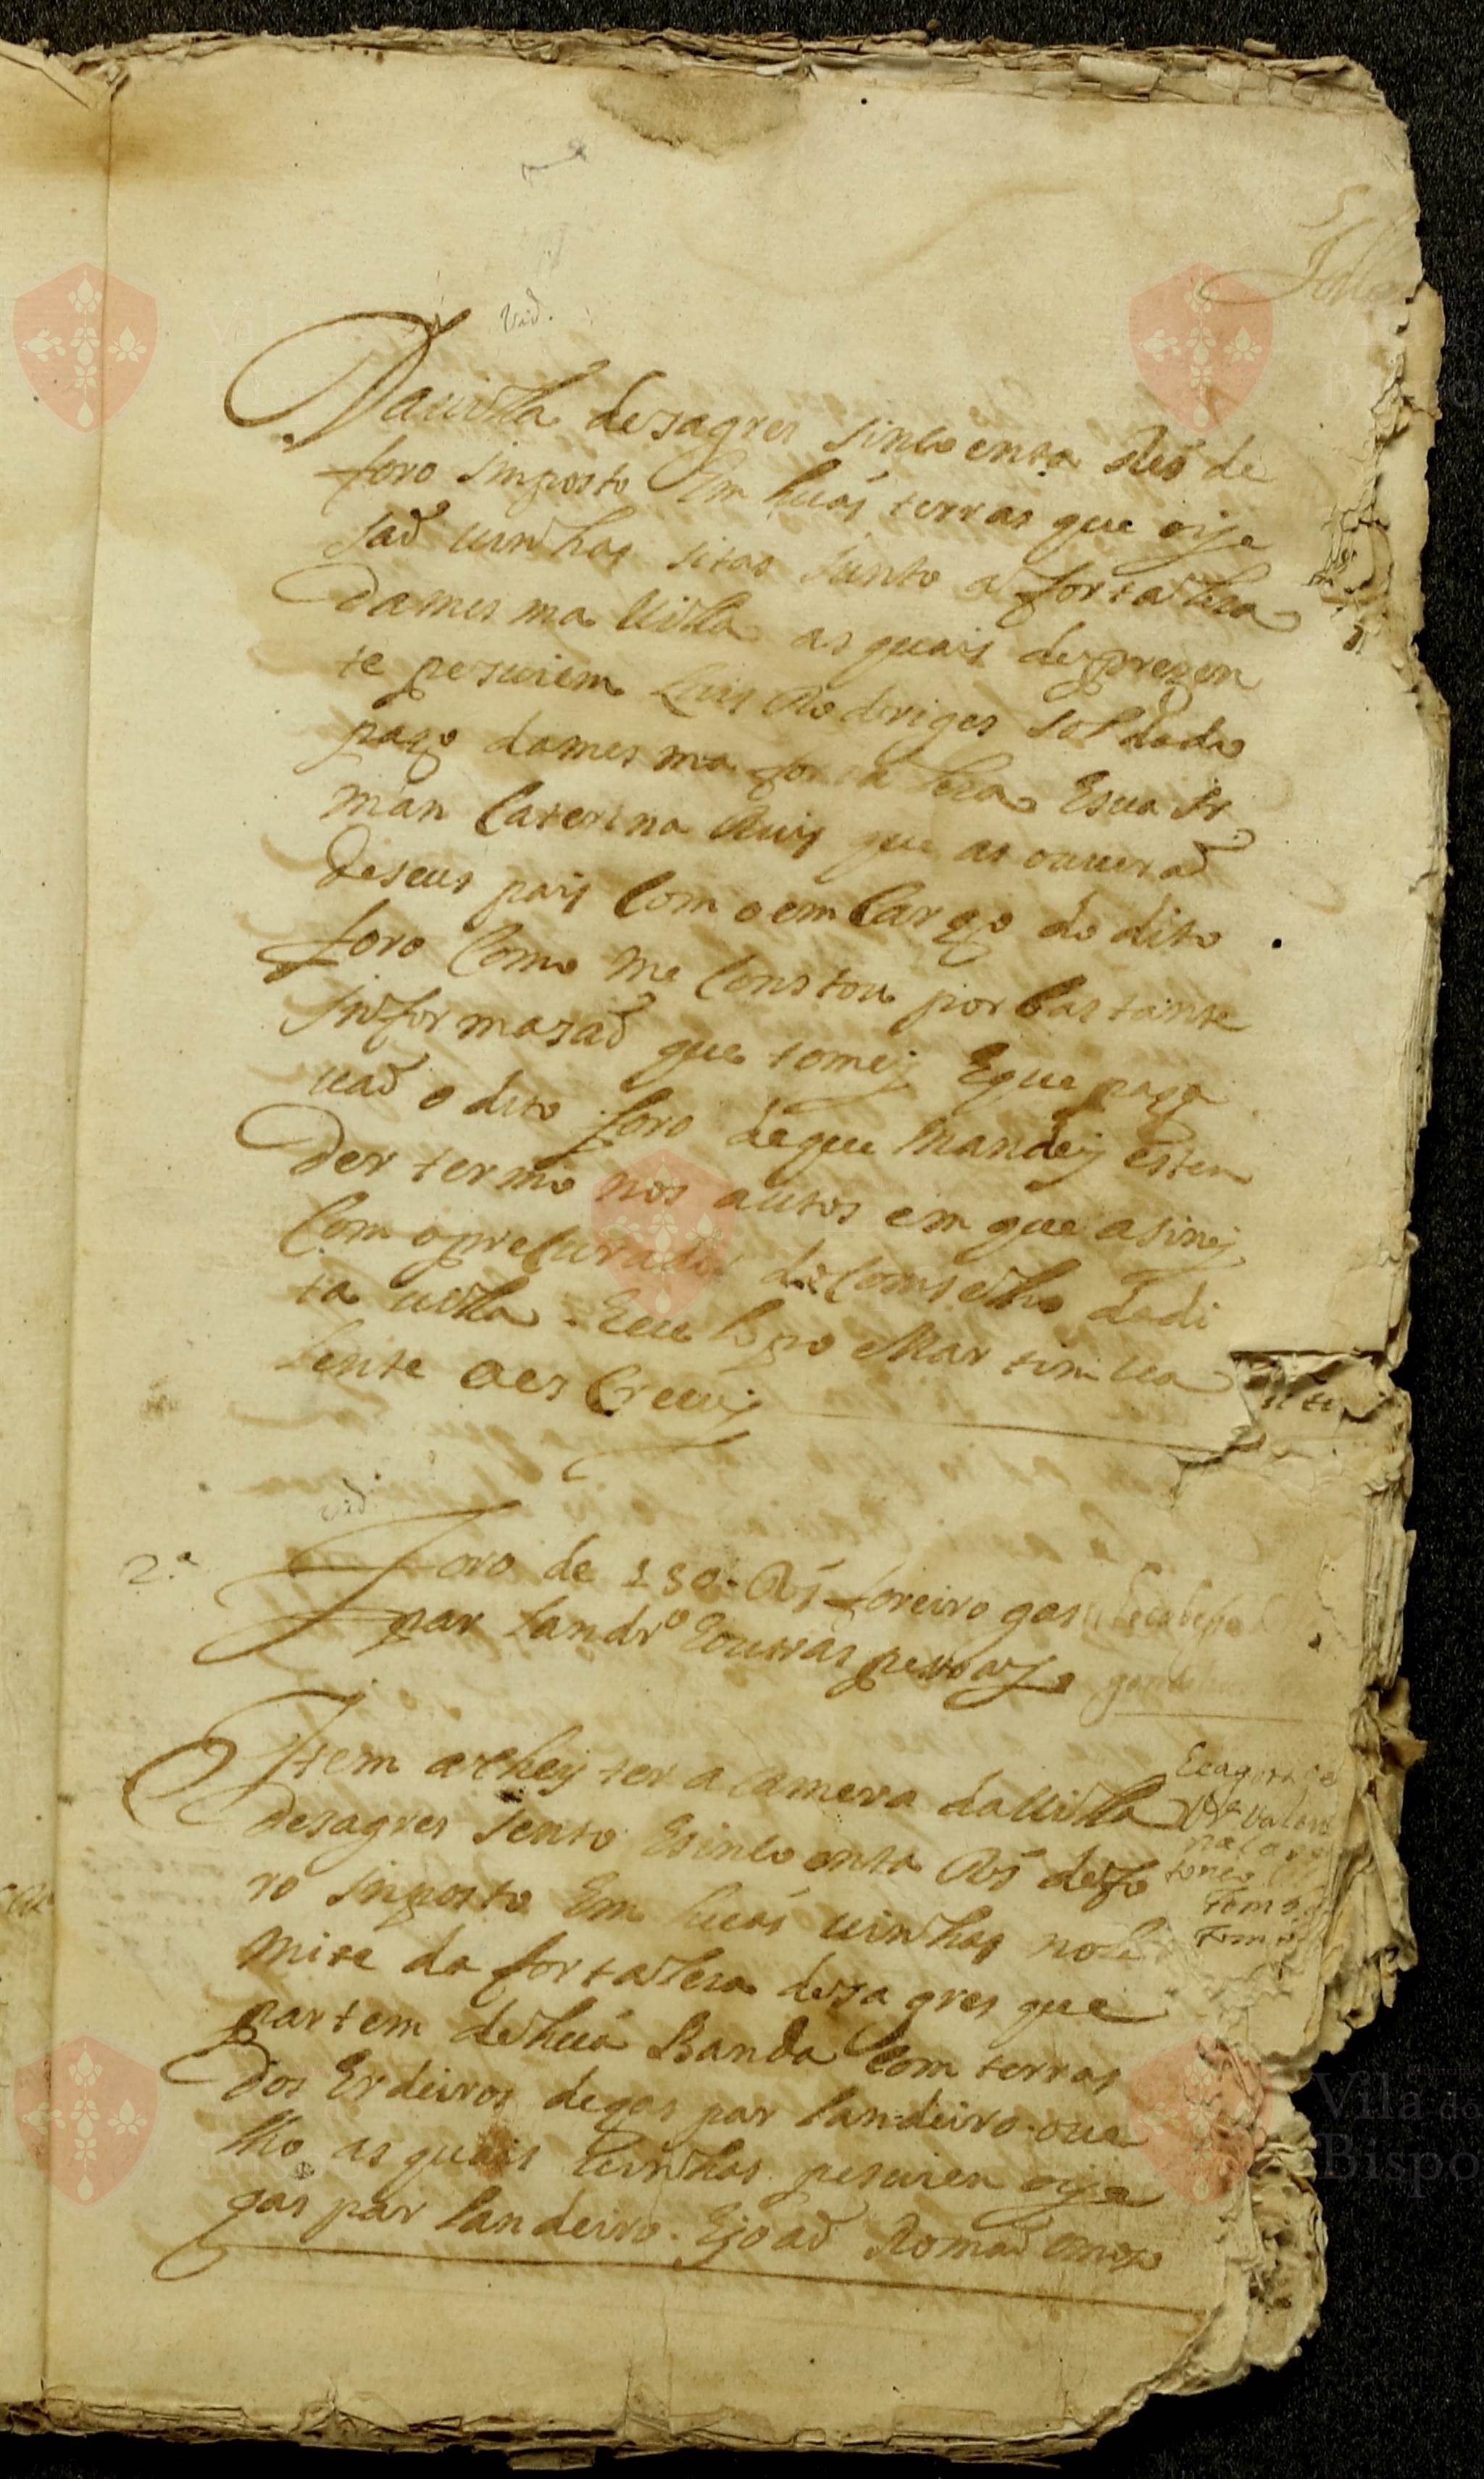 Vid.
Da uilla de sagres sincoenta Rẽs de
foro imposto Em huãs terras que oije
saõ uinhas sitas iunto a fortaleza
da mesma Uilla as quais de prezen
te pesuiem Luis Rodriges soldado
pago da mesma fortaleza E sua Ir
man Caterina Ruis que as ouueraõ
de seus pais Com o emcargo do dito
foro Como me Constou por bastante
informasaõ que tomej E que paga
uaõ o dito foro de que mandej esten
der termo nos autos em que asinej
Com o precurador do Comselho da di
ta uilla. E eu Lopo Martim ua
lente o esCreuj
vid.
2.ª
Foro de 150. Rs foreiro gas
par Landrº E outras pesoas
Item achej ter a Camera da Uilla
de sagres sento E sincoenta Rs de fo
ro imposto Em huãs uinhas no li
mite da fortaleza de sagres que
partem de huã Banda Com terras
dos Erdeiros de gaspar Landeiro oue
lho as quais uinhas pesuien oije
gaspar Landeiro. E joaõ Romaõ
E agora
Tome
Vila do
Bispo